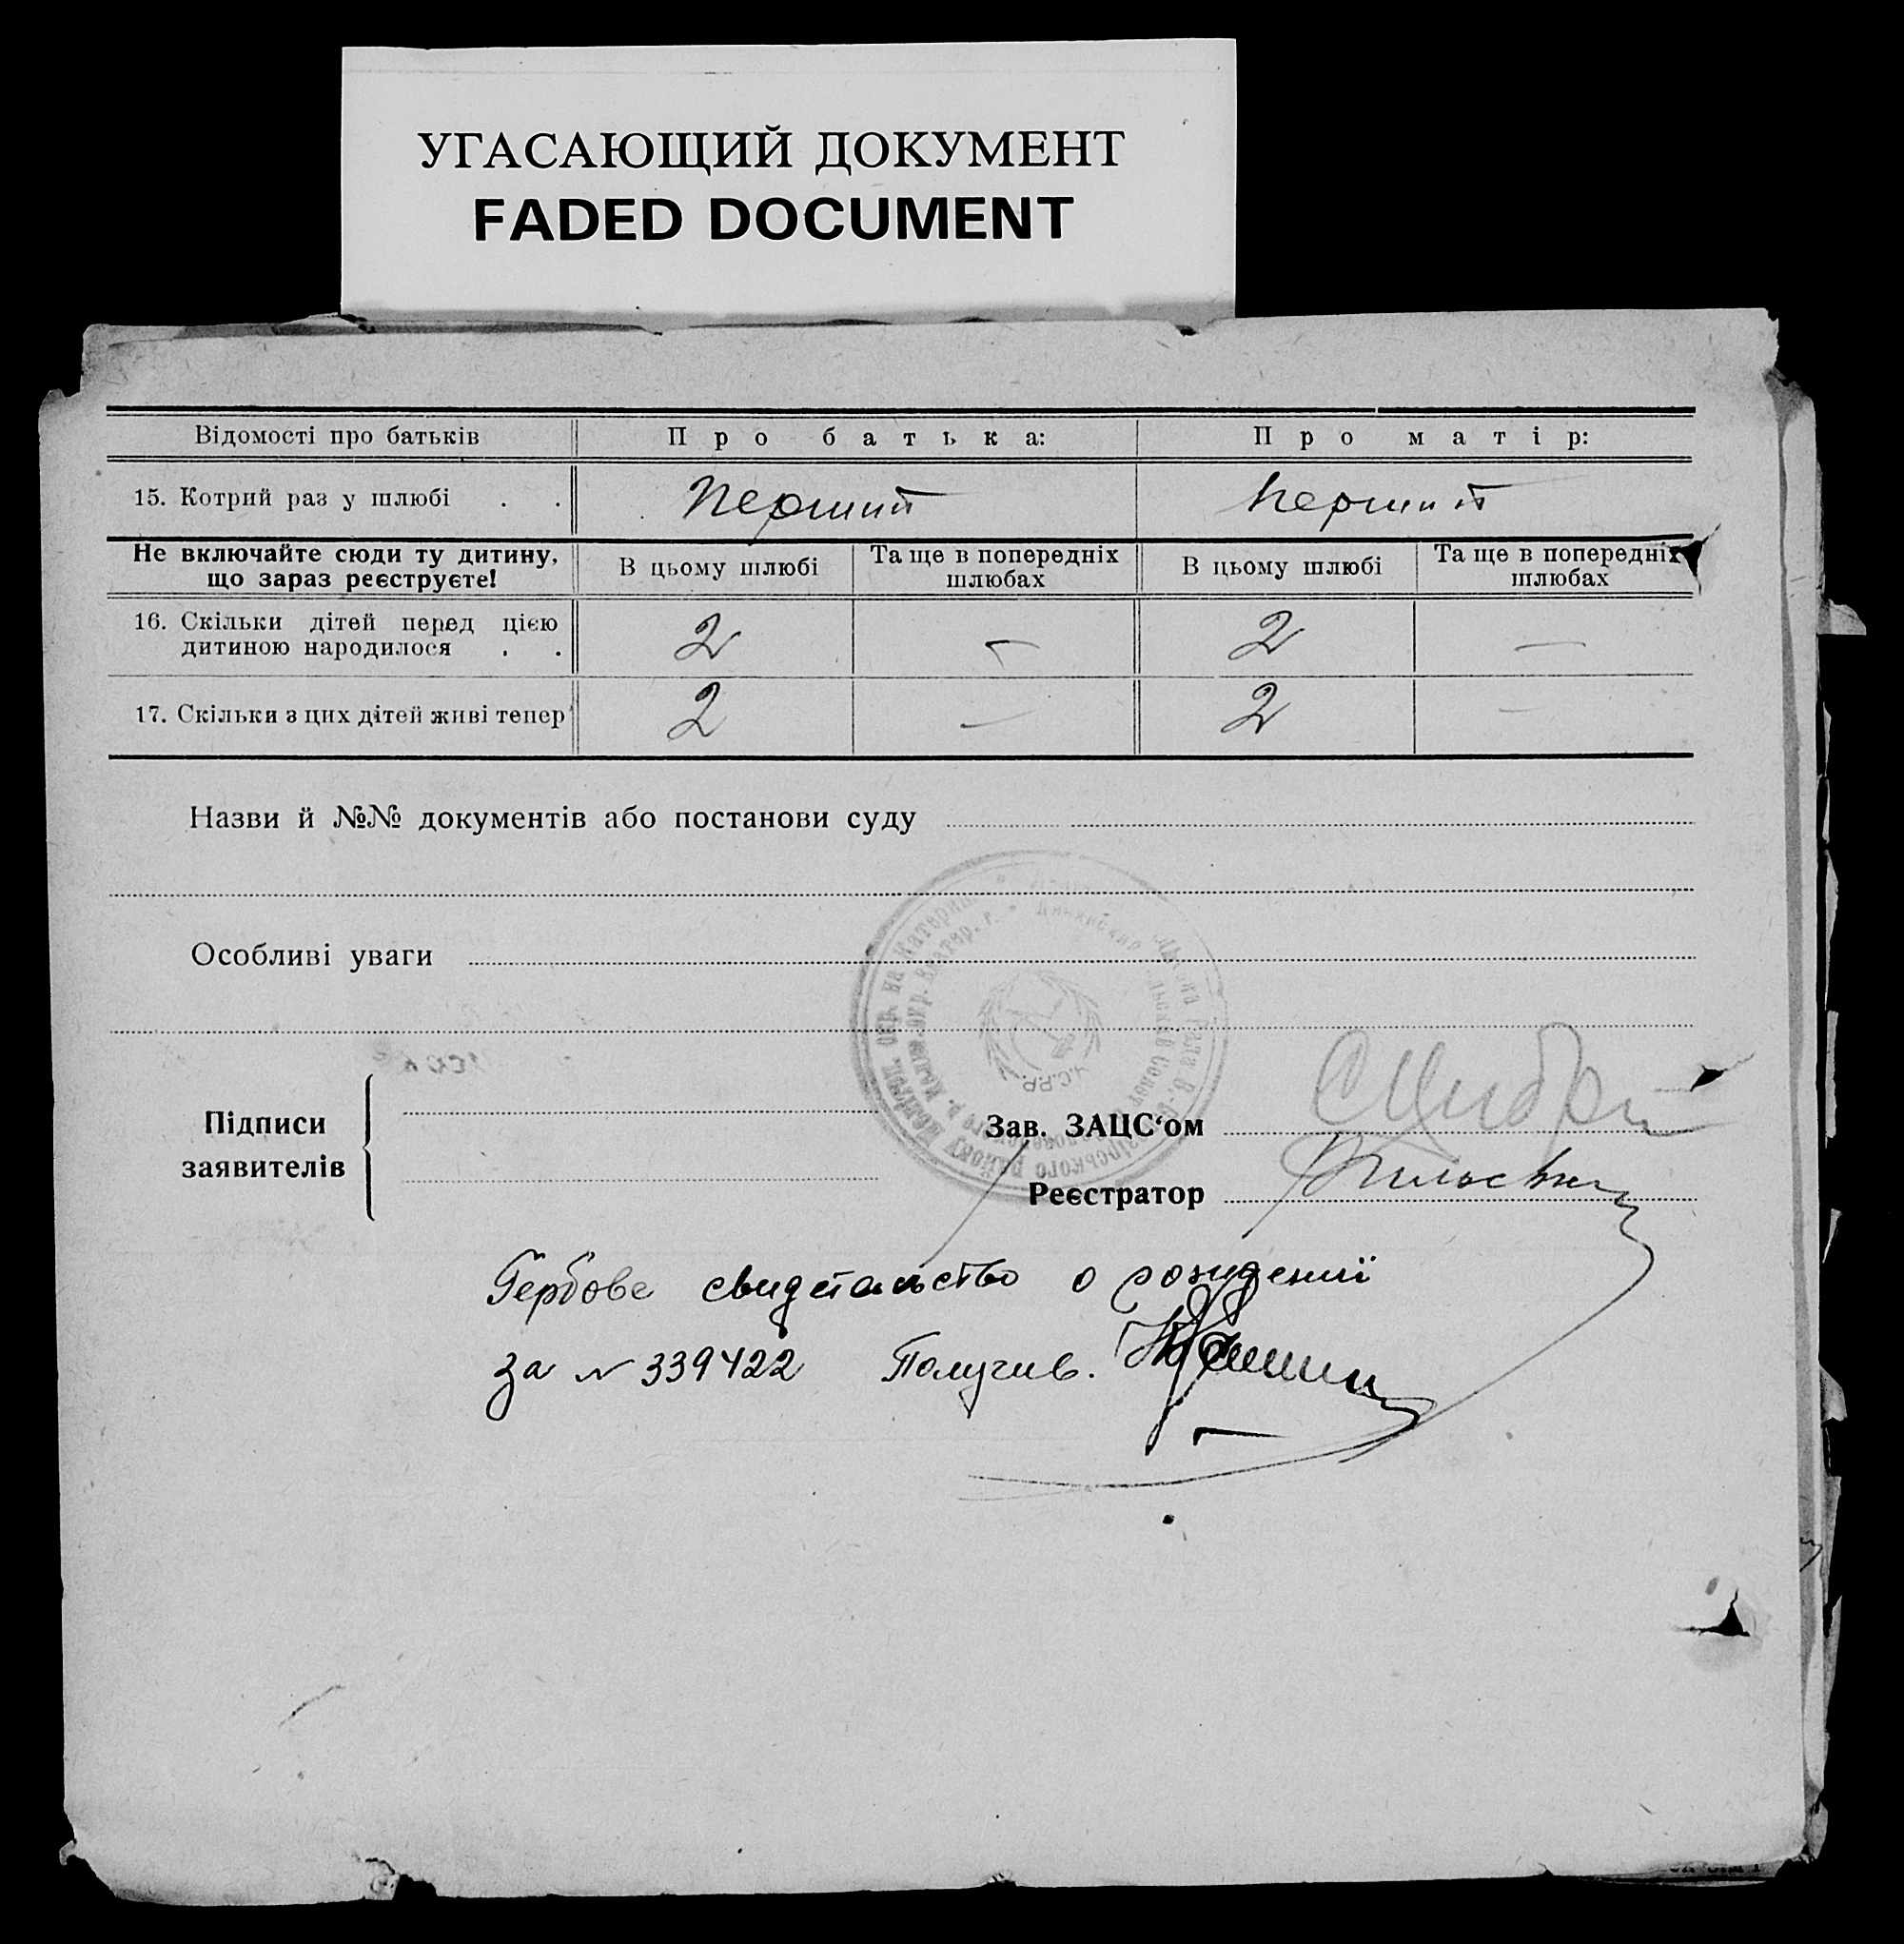 УГАСАЮЩИЙ ДОКУМЕНТ
FADED DOCUMENT
Відомості про батьків
Про батька:
Про матір:
15. Котрий раз у шлюбі . .
Перший
Перший
Не включайте сюди ту дитину,
що зараз реєструєте!
В цьому шлюбі
Та ще в попередніх
шлюбах
В цьому шлюбі
Та ще в попередніх
шлюбах
16. Скільки дітей перед цією
дитиною народилося . .
2
—
2
—
17. Скільки з цих дітей живі тепер
2
—
2
—
Назви й №№ документів або постанови суду
Особливі уваги
Підписи
заявителів
Зав. ЗАЦС‘ом
Реєстратор
Гербове свидетельство о рождениї
за № 339422 Получив.